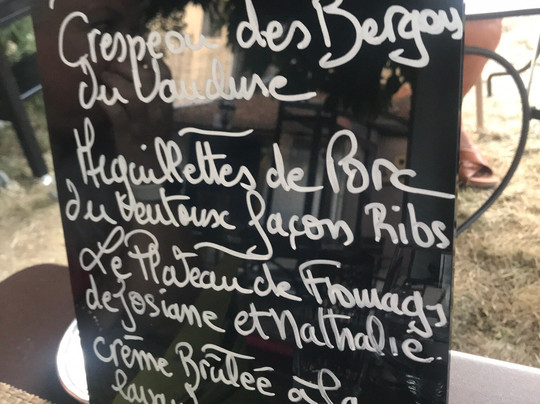 Crespeou des Bergers
du Vaucluse
Aiguillettes de Porc
du Ventoux façon Ribs
Le Plateau de Fromages
de Josiane et Nathalie.
Crème Brûlée à la